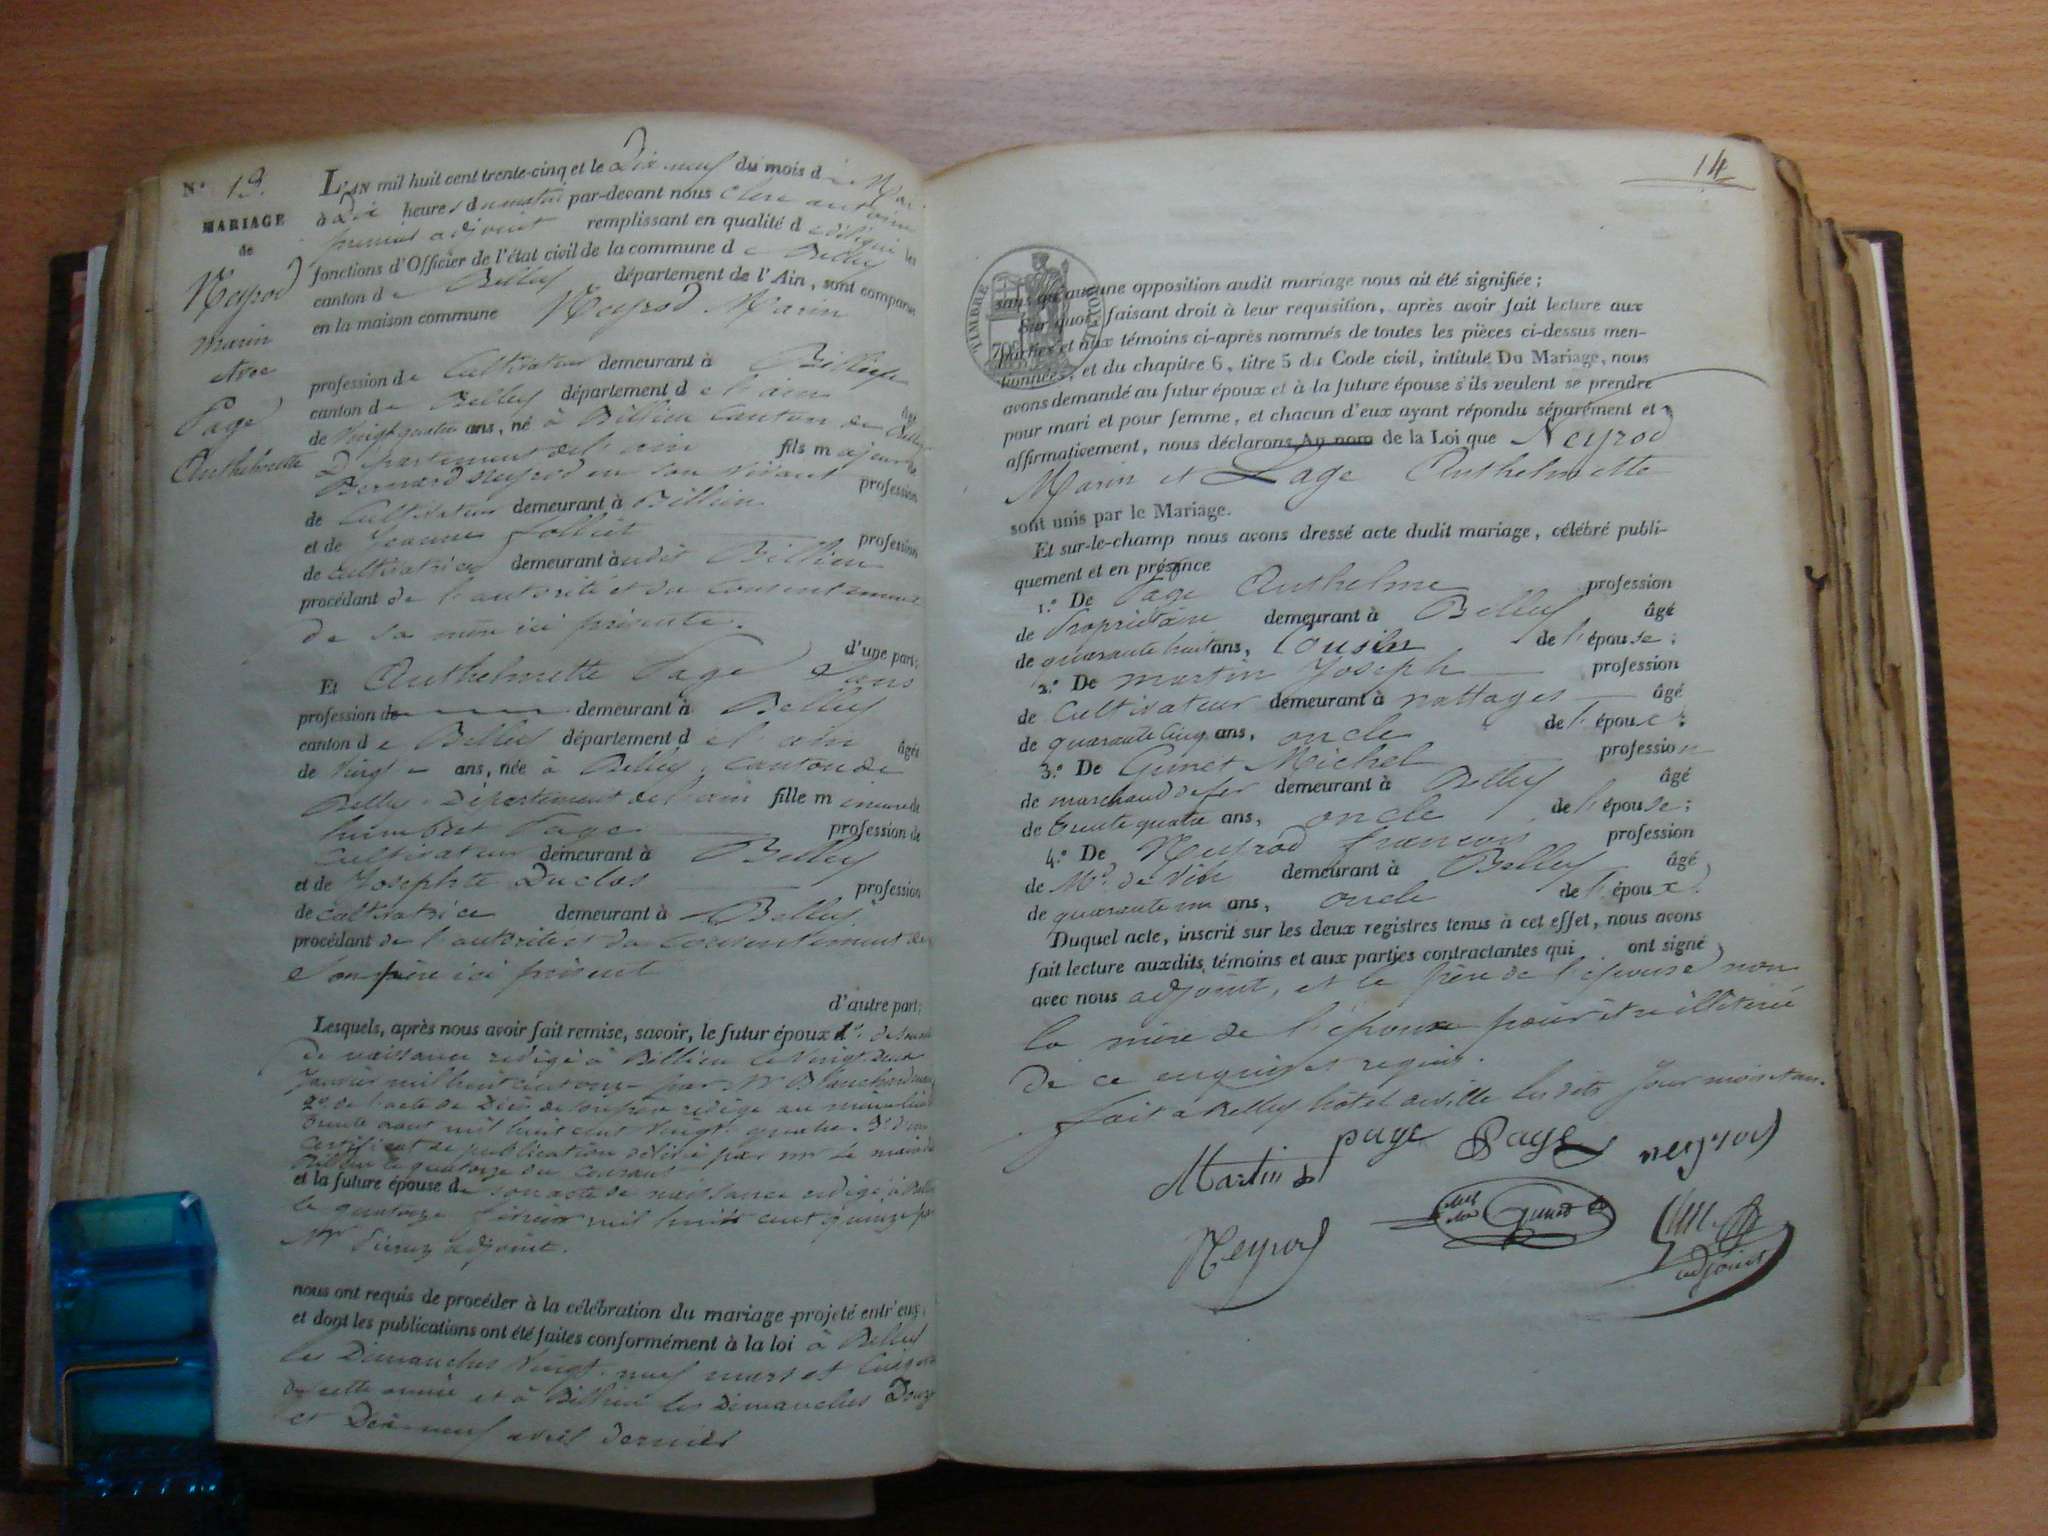 N.° 13.
MARIAGE
de
Neyrod
Marin
Avec
Page
Anthelmette
L'AN mil huit cent trente-cinq et le Dix neuf du mois de Mai
à Dix heures du matin par-devant nous Clerc antoine
premier adjoint remplissant en qualité de les
fonctions d'Officier de l'état civil de la commune de Belley
canton de Belley département de l'Ain, sont comparus
en la maison commune Neyrod Marin
profession de Cultivateur demeurant à Billieu
canton de Belley département de l'ain âgé
de Vingt quatre ans, né à Billieu Canton de Belley
Département de l'ain fils majeur de
Bernard Neyrod en son vivant profession
de Cultivateur demeurant à Billieu
et de Jeanne Folliet profession
de cultivatrice demeurant audit Billieu
procédant de l'autorité et du Consentement
de sa mère ici présente.
d'une part;
Et Anthelmette Page Sans
profession de demeurant à Belley
canton de Belley département de l'ain âgée
de Vingt ans, née à Belley, Canton de
Belley Département de l'ain fille mineure de
humbert Page profession de
Cultivateur demeurant à Belley
et de Josephte Duclos profession
de cultivatrice demeurant à Belley
procédant de l'autorité et du Consentement de
Son père ici présent
d'autre part;
Lesquels, après nous avoir fait remise, savoir, le futur époux 1.° de son acte
de naissance redigé à Billieu le Vingt Deux
Janvier mil huit cent onze par Mr Blanchard maire
2° de l'acte de Décès de son père redigé au même lieu
trente aout mil huit cent Vingt quatre. 3° d'un
certificat de publication délivré par mr le maire de
Billieu le quatorze du courant
et la future épouse de son acte de naissance redigé à Belley
le quatorze février mil huit cent quinze par
Mr adjoint.
nous ont requis de procéder à la célébration du mariage projeté entr'eux,
et dont les publications ont été faites conformément à la loi à Belley
les Dimanches Vingt neuf mars et Cinq avril
de cette année et à Billieu les Dimanches Douze
et Dix neuf avril dernier
14
TIMBRE ROYAL
70c
sans qu'aucune opposition audit mariage nous ait été signifiée;
Sur quoi, faisant droit à leur requisition, après avoir fait lecture aux
parties et aux témoins ci-après nommés de toutes les pièces ci-dessus men-
tionnées, et du chapitre 6, titre 5 du Code civil, intitulé Du Mariage, nous
avons demandé au futur époux et à la future épouse s'ils veulent se prendre
pour mari et pour femme, et chacun d'eux ayant répondu séparément et
affirmativement, nous déclarons Au nom de la Loi que Neyrod
Marin et Page Anthelmette
sont unis par le Mariage.
Et sur-le-champ nous avons dressé acte dudit mariage, célébré publi-
quement et en présence
1.° De Page Anthelme profession
de Propriétaire demeurant à Belley âgé
de quarante huit ans, Cousin de l'épouse;
2.° De Martin Joseph profession
de Cultivateur demeurant à nattages âgé
de quarante cinq ans, oncle de l'épouse;
3.° De Gunet Michel profession
de marchand de fer demeurant à Belley âgé
de trente quatre ans, oncle de l'épouse;
4.° De Neyrod francois profession
de Md. de demeurant à Belley âgé
de quarante un ans, oncle de l'époux,
Duquel acte, inscrit sur les deux registres tenus à cet effet, nous avons
fait lecture auxdits témoins et aux parties contractantes qui ont signé
avec nous adjoint, et le père de l'épouse, non
la mère de l'époux pour être illitérée
de ce enquise et requise.
fait à Belley hôtel de ville les dits Jour mois et an.
Martin page Page neyrod
Neyrod Gunet
adjoint